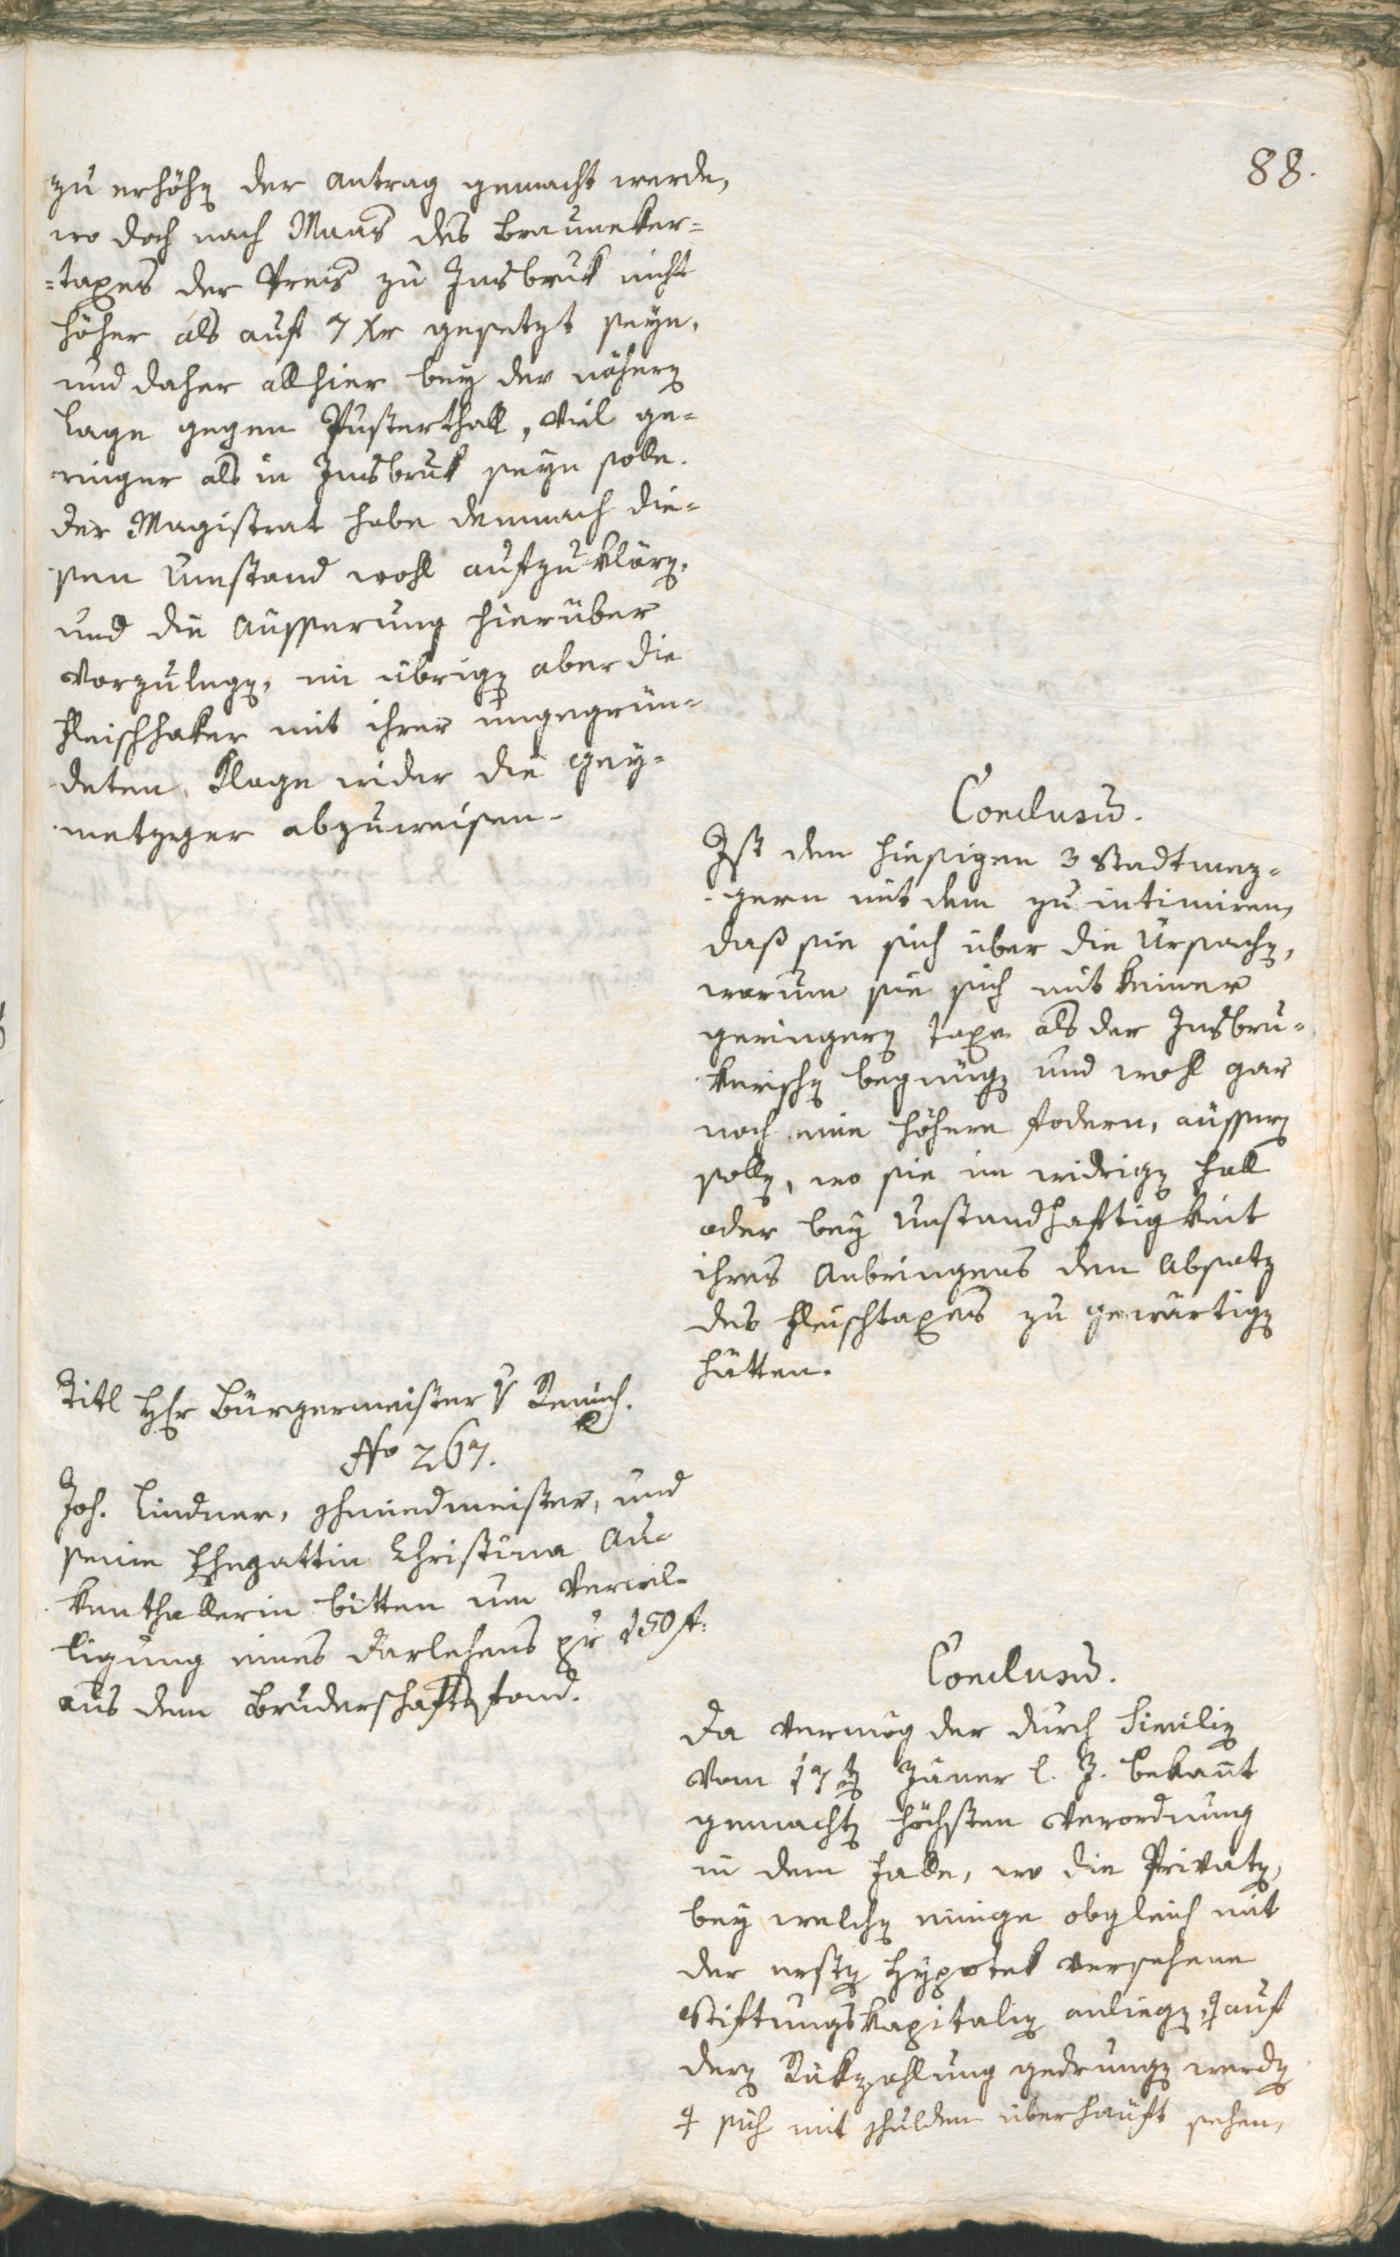 88.
zu erhöhen der Antrag gemacht werde,
wo doch nach Maas des Brauneker=
=taxes der Preis zu Insbruk nicht
höher als auf 7 Xr gesetzt seye,
und daher allhier bey der nähern
Lage gegen Pusterthall, viel ge=
ringer als in Insbruk seyn solle.
Der Magistrat habe demnach die=
sen Umstand wohl aufzuklären,
und die Äusserung hierüber
vorzulegen, im übrigen aber die
Fleischhaker mit ihrer ungegrün=
deten Klage wider die Gey=
metzger abzuweisen.
Conclusum.
Ist den hiesigen 3 Stadtmez=
gern mit dem zu intimiren,
daß sie sich über die Ursachen,
warum sie sich mit keiner
geringern Taxe als der Insbru=
kerischen begnügen und wohl gar
noch eine höhere fodern, äussern
sollen, wo sie im widrigen Fall
oder bey Unstandhaftigkeit
ihres Anbringens den Absatz
des Fleischtaxes zu gewärtigen
hätten.
Titl Hr Bürgermeister v
No 267.
Joh. Lindner, Schmiedmeister, und
seine Ehegattin Christina Au=
kenthallerin bitten um Verwil=
ligung eines Darlehens pr 150 f.
aus dem Bruderschaftsfond.
Conclusum.
Da vermög der durch Similien
vom 17ten Jäner l. J. bekannt
gemachten höchsten Verordnung
in dem Falle, wo die Privaten,
bey welchen einige obgleich mit
der ersten Hypotek versehene
Stiftungskapitalien anliegen, auf
deren Rükzahlung gedrungen werden
sich mit Schulden überhäuft sehen,